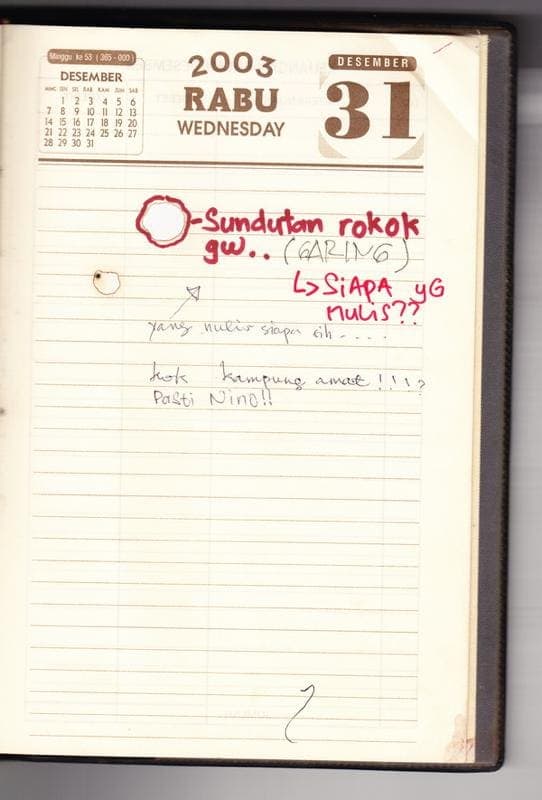 Minggu ke 53 ( 365 - 000 )
DESEMBER
MNG SEN SEL RAB KAM JUM SAB
1 2 3 4 5 6
7 8 9 10 11 12 13
14 15 16 17 18 19 20
21 22 23 24 25 26 27
28 29 30 31
2003
RABU
WEDNESDAY
DESEMBER
31
-Sundutan rokok
gw.. (GARING)
↳SiAPA yG
nulis??
yang nulis siapa sih.....
kok kampung amat !!!?
Pasti Nino!!